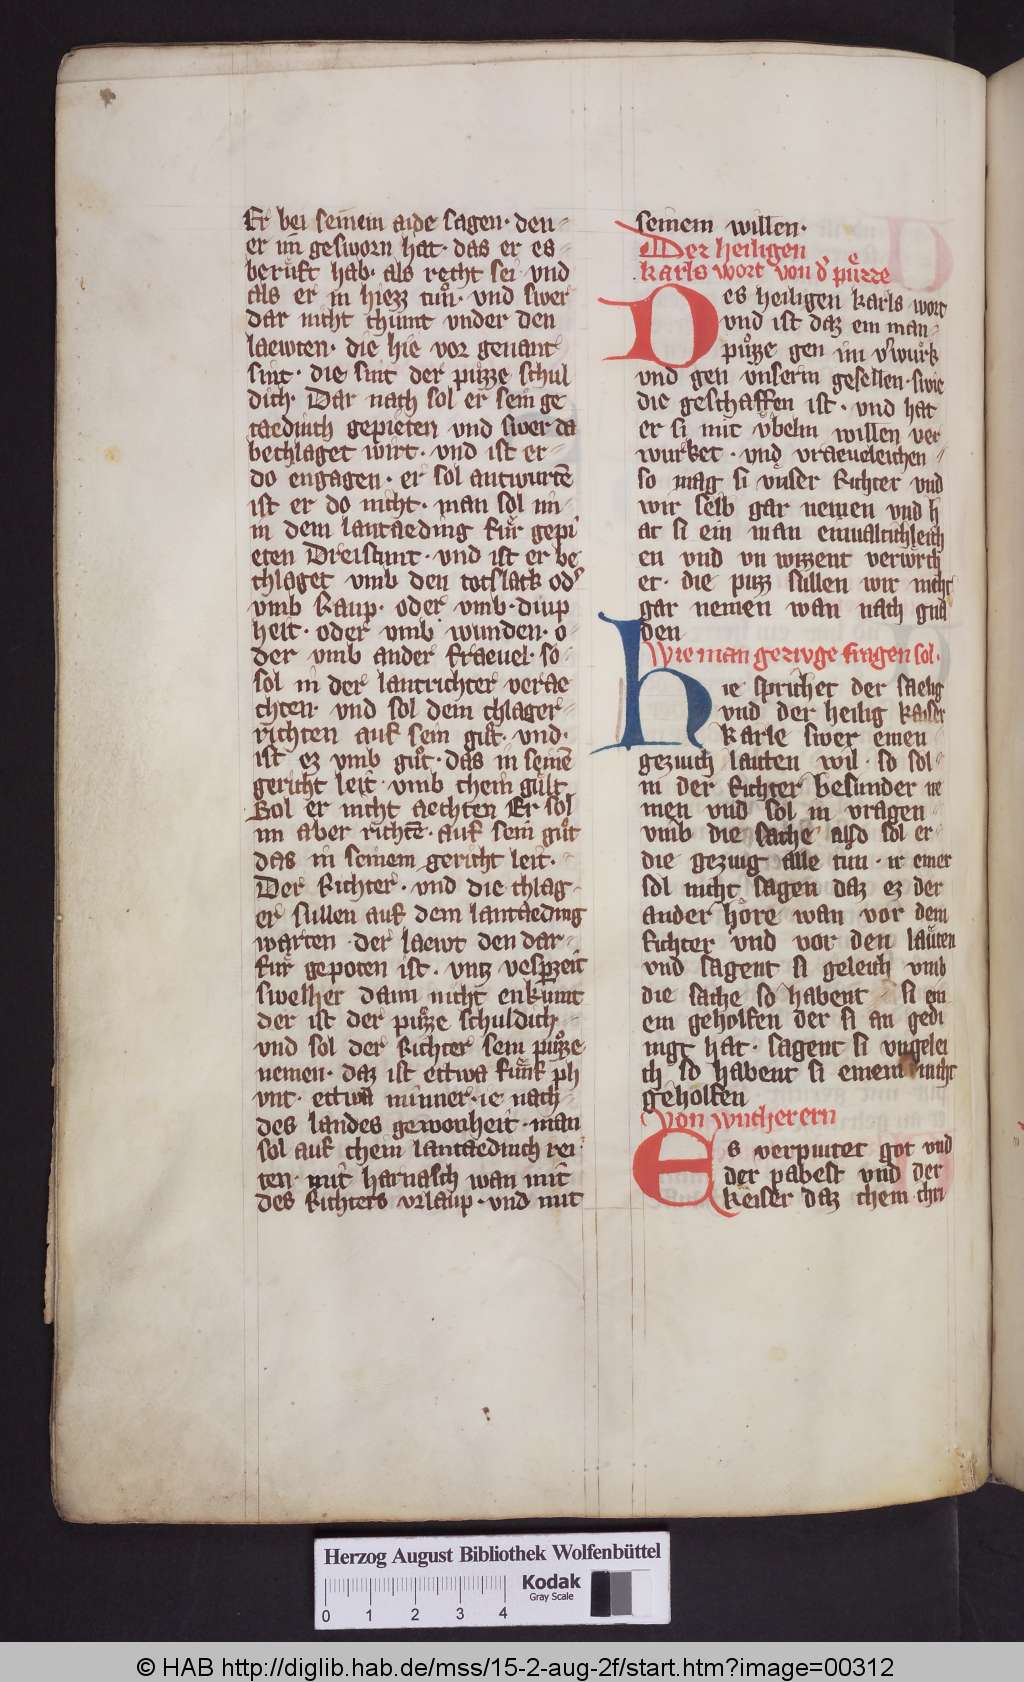 Er bei seinem aide sagen · den
er im gesworn hat · das er es
berůft hab · als recht sei vnd
als er in hiezz tůn · vnd swer
dar nicht chumt vnder den
laewten · die hie vor genant
sint · die sint der puzze schul
dich · Dar nach sol er sein ge
taedinch gepieten vnd swer da
bechlaget wirt · vnd ist er
do engagen · er sol antwurtē
ist er do nicht · man sol im
in dem lantaeding für gepi
eten Dreistunt · vnd ist er be
chlaget vmb den totslack od'
vmb Raup · oder vmb · diup
heit · oder vmb wunden · o
der vmb ander fraeuel · so
sol in der lantrichter verae
chten · vnd sol dem chlager
richten auf sein gůt · vnd ·
ist ez vmb gůt · das in seinē
gericht leit · vmb chein gült
Sol er nicht aechten Er sol
im aber richtē · auf sein gůt
das in seinem gericht leit ·
Der Richter · vnd die chlag
er sullen auf dem lantaeding
warten · der laewt den dar
für gepoten ist · vntz vesperzeit
swelher dann nicht enkumt
der ist der půzze schuldich
vnd sol der Richter sein půzze
nemen · daz ist ettwa fünf ph
vnt · ettwa minner · ie nach
des landes gewonheit · man
sol auf chein lantaedinch rei
ten · mit harnasch wan mit
des Richters vrlaup · vnd mit
seinem willen ·
Der heiligen
karls wort von d' půzze
Des heiligen karls wort
vnd ist daz ein man
půzze gen im v'würk
vnd gen vnserm gesellen · swie
die geschaffen ist · vnd hat
er si mit übelm willen ver
wurket · vnd vraeueleichen
so mag si vnser Richter vnd
wir selb gar nemen vnd h
at si ein man einualtichleich
en vnd vn wizzent verwrch
et · die puzz sullen wir nicht
gar nemen wan nach gna
den
Wie man geziuge fragen sol ·
hie sprichet der saelig
vnd der heilig kaiser
karle swer einen
geziuch lauten wil · so sol
in der Richter besunder ne
men vnd sol in vragen
vmb die sache also sol er
die geziug alle tun · ir einer
sol nicht sagen daz ez der
ander höre wan vor dem
Richter vnd vor den läuten
vnd sagent si geleich vmb
die sache so habent si ein
em geholfen der si an gedi
ngt hat · sagent si vngelei
ch so habent si einem nicht
geholfen
Von wucherern
Es verpiutet got vnd
der pabest vnd der
keiser daz chein chri
Herzog August Bibliothek Wolfenbüttel
Kodak
Gray Scale
0 1 2 3 4
© HAB http://diglib.hab.de/mss/15-2-aug-2f/start.htm?image=00312